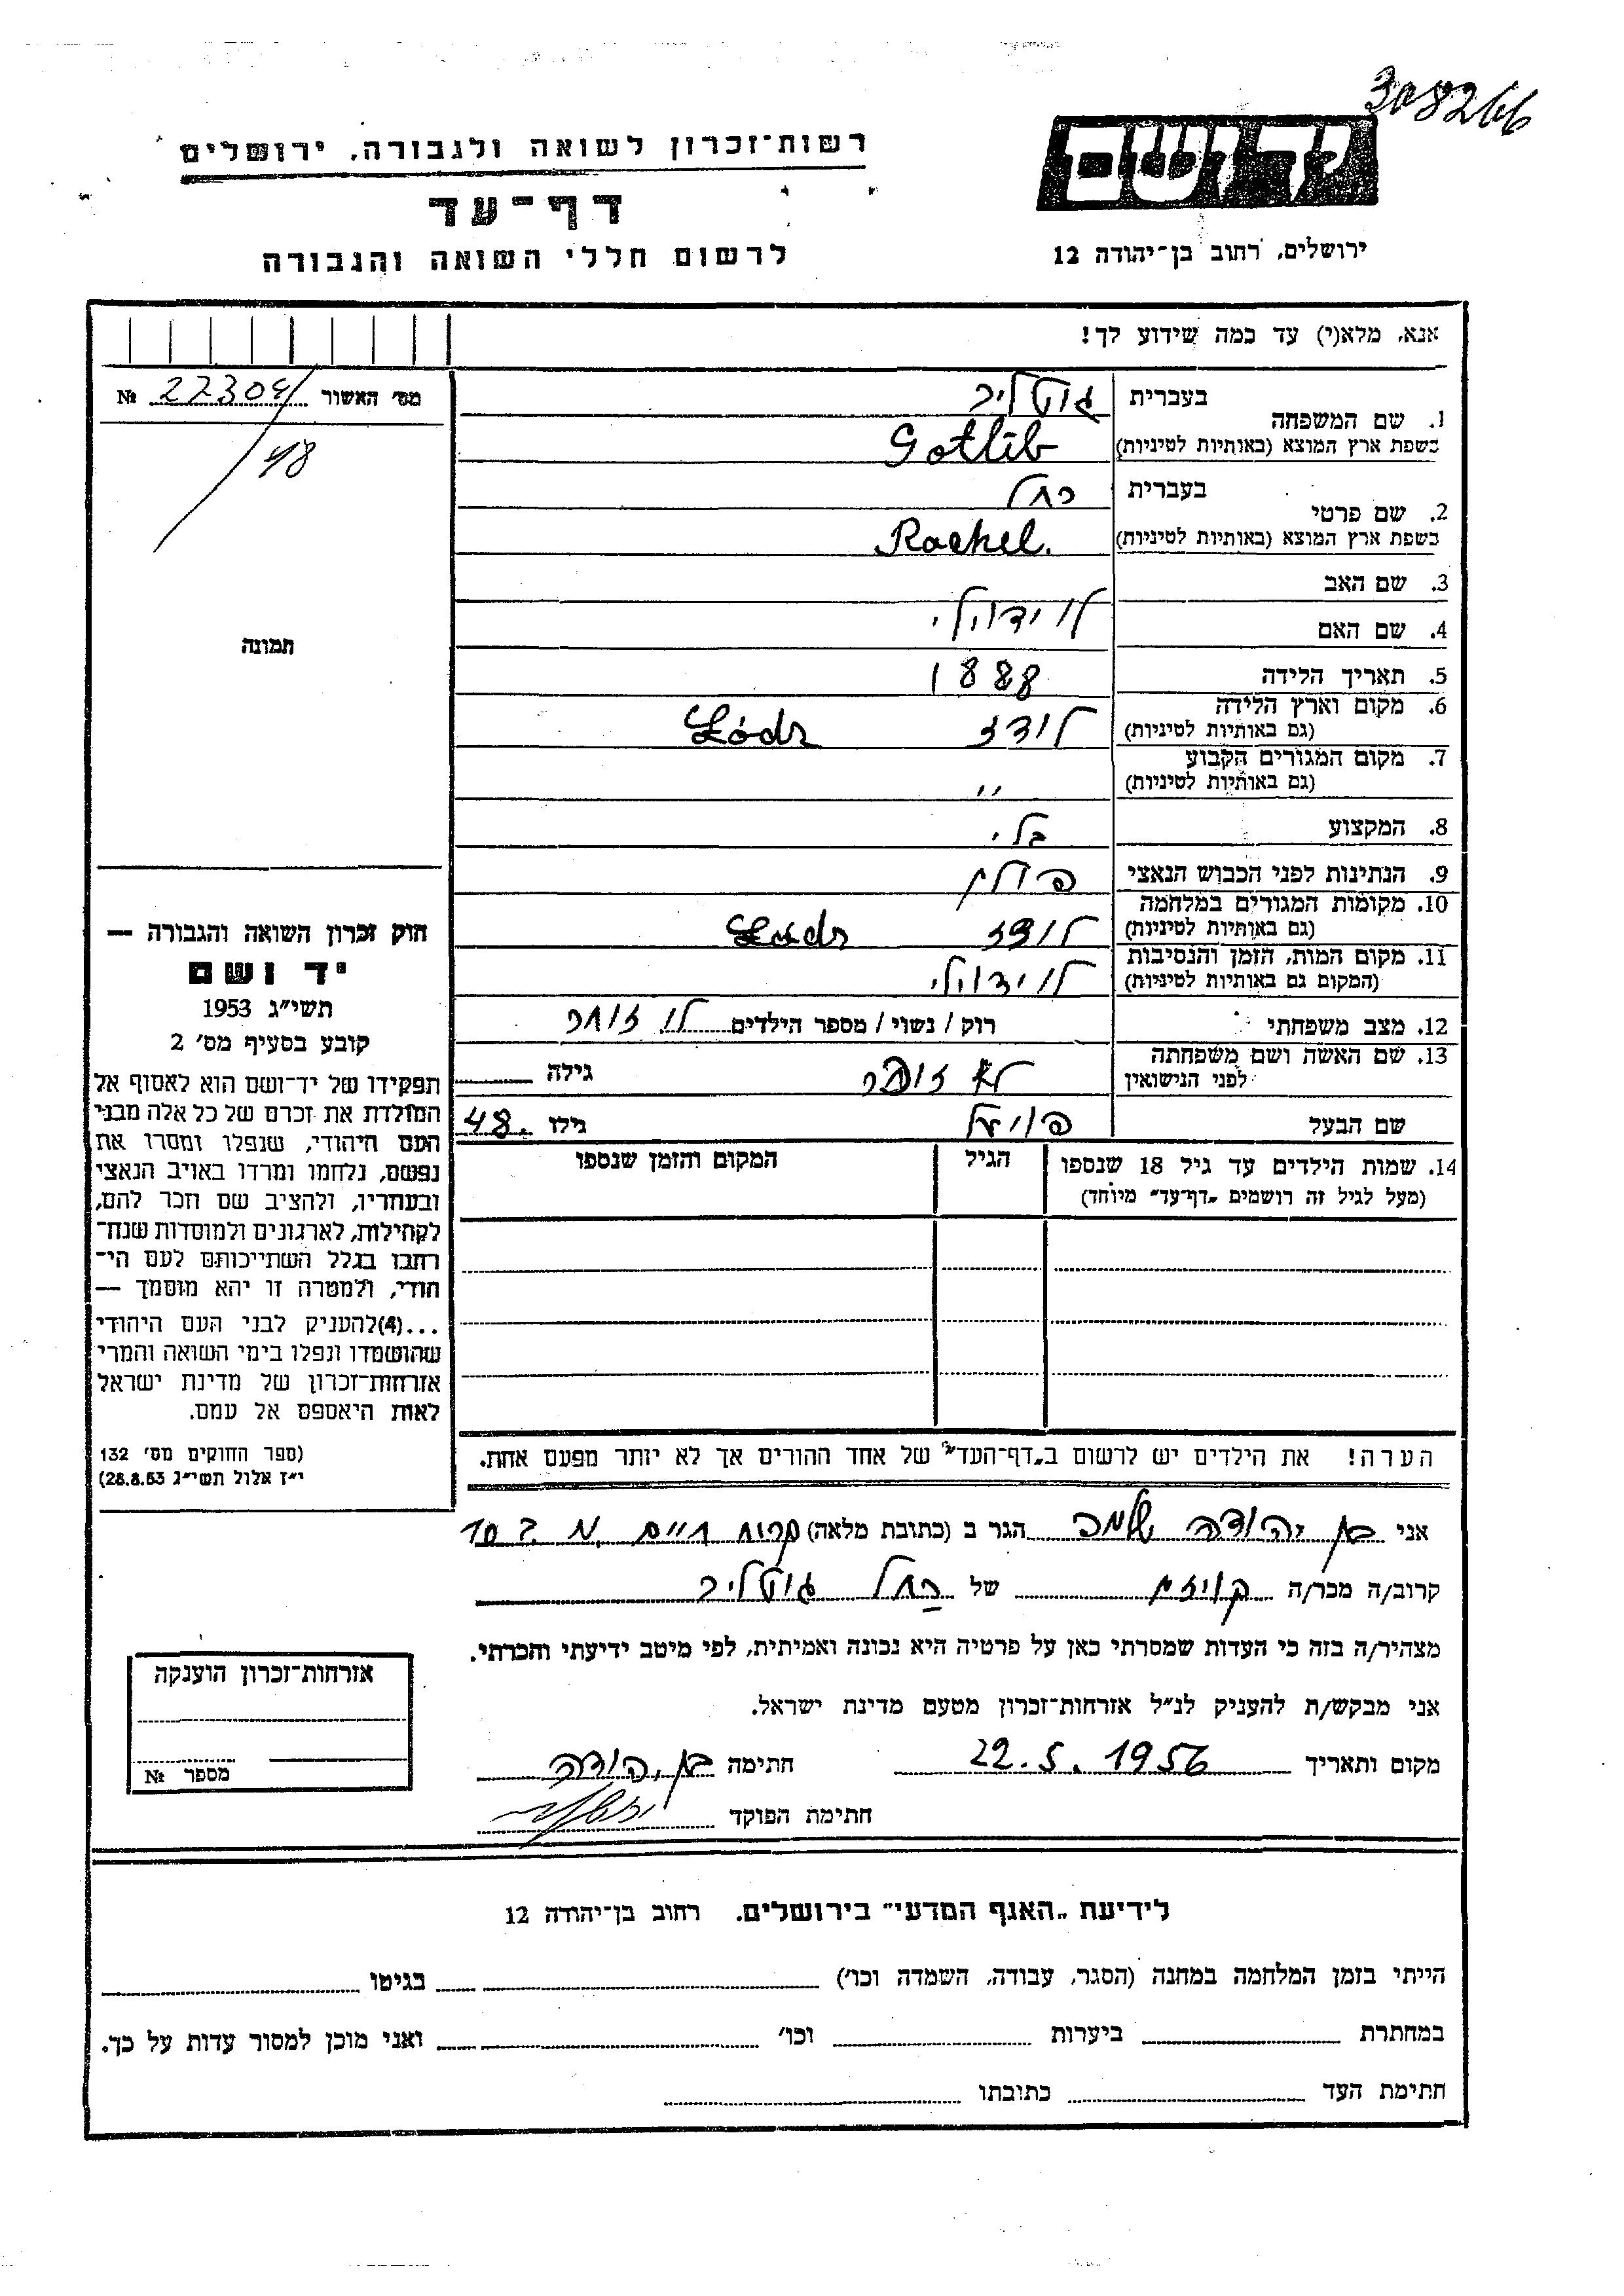 308266
יד ושם
רשות־זכרון לשואה ולגבורה, ירושלים
דף־עד
לרשום חללי השואה והגבורה
ירושלים, רחוב בן־יהודה 12
אנא, מלא(י) עד כמה שידוע לך!
מס׳ האשור 22304 №
48
תמונה
חוק זכרון השואה והגבורה —
יד ושם
תשי״ג 1953
קובע בסעיף מס׳ 2
תפקידו של יד־ושם הוא לאסוף אל
המולדת את זכרם של כל אלה מבני
העם היהודי, שנפלו ומסרו את
נפשם, נלחמו ומרדו באויב הנאצי
ובעוזריו, ולהציב שם וזכר להם,
לקהילות, לארגונים ולמוסדות שנח־
רבו בגלל השתייכותם לעם הי־
הודי, ולמטרה זו יהא מוסמך —
...(4)להעניק לבני העם היהודי
שהושמדו ונפלו בימי השואה והמרי
אזרחות־זכרון של מדינת ישראל
לאות היאספם אל עמם.
(ספר החוקים מס׳ 132
י״ז אלול תשי״ג 28.8.53)
בעברית גוטליב
1. שם המשפחה
בשפת ארץ המוצא (באותיות לטיניות) Gotlib
בעברית רחל
2. שם פרטי
בשפת ארץ המוצא (באותיות לטיניות) Rachel.
3. שם האב
4. שם האם לו ידוע לי
5. תאריך הלידה 1888
6. מקום וארץ הלידה לודז Łódz
(גם באותיות לטיניות)
7. מקום המגורים הקבוע
(גם באותיות לטיניות) ״
8. המקצוע בלי
9. הנתינות לפני הכבוש הנאצי פולין
10. מקומות המגורים במלחמה
(גם באותיות לטיניות) לודז Łódz
11. מקום המות, הזמן והנסיבות
(המקום גם באותיות לטיניות) לו ידוע לי
12. מצב משפחתי רוק / נשוי / מספר הילדים לו זוכר
13. שם האשה ושם משפחתה לא זוכר גילה
לפני הנישואין
שם הבעל גילו 48.
14. שמות הילדים עד גיל 18 שנספו הגיל המקום והזמן שנספו
(מעל לגיל זה רושמים „דף־עד״ מיוחד)
הערה! את הילדים יש לרשום ב„דף־העד״ של אחד ההורים אך לא יותר מפעם אחת.
אני בן יהודה שלמה הגר ב (כתובת מלאה) קרית חיים
קרוב/ה מכר/ה קוזין של רחל גוטליב
מצהיר/ה בזה כי העדות שמסרתי כאן על פרטיה היא נכונה ואמיתית, לפי מיטב ידיעתי והכרתי.
אני מבקש/ת להעניק לנ״ל אזרחות־זכרון מטעם מדינת ישראל.
מקום ותאריך 22.5.1956 חתימה בן יהודה
חתימת הפוקד
אזרחות־זכרון הוענקה
מספר №
לידיעת „האגף המדעי״ בירושלים. רחוב בן־יהודה 12
הייתי בזמן המלחמה במחנה (הסגר, עבודה, השמדה וכו׳) בגיטו
במחתרת ביערות וכו׳ ואני מוכן למסור עדות על כך.
חתימת העד כתובתו